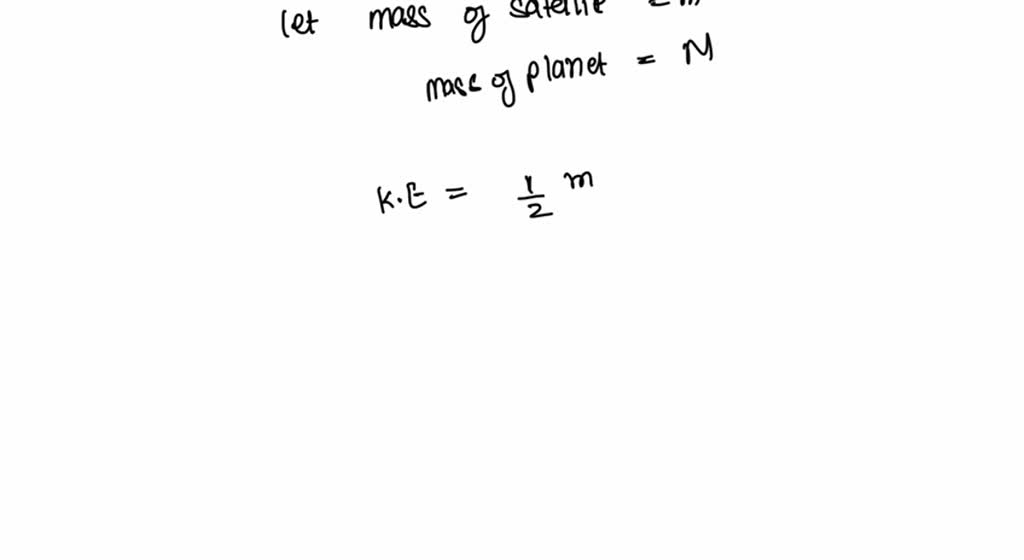 let mass of satellite = m
mass of planet = M
K.E = 1/2 m